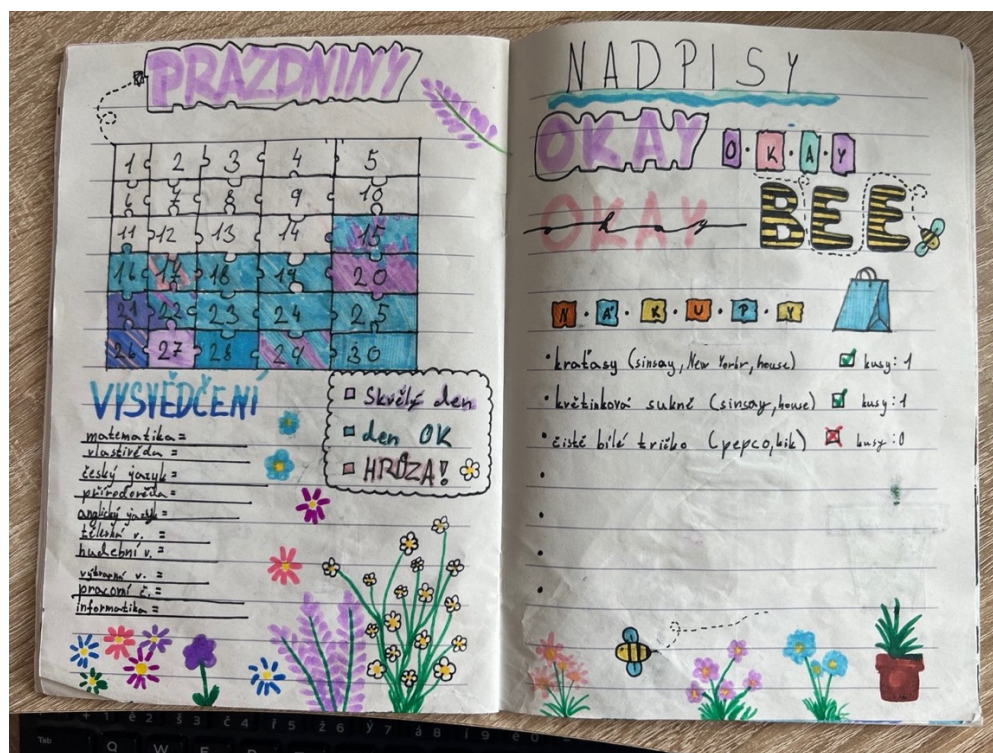 PRÁZDNINY
1 2 3 4 5
6 7 8 9 10
11 12 13 14 15
16 17 18 19 20
21 22 23 24 25
26 27 28 29 30
VYSVĚDČENÍ
matematika=
vlastivěda=
český jazyk=
přírodověda=
anglický jazyk=
tělesná v. =
hudebni v. =
výtvarná v. =
pracovní č. =
informatika=
Skvělý den
den OK
HRŮZA!
NADPISY
OKAY O·K·A·Y
OKAY okay BEE
N·Á·K·U·P·Y
• kraťasy (sinsay, New Yorkr, house) kusy: 1
• květinková sukně (sinsay, house) kusy: 1
• čisté bílé tričko (pepco, kik) kusy: 0
Tab + 1 ě 2 š 3 č 4 ř 5 ž 6 ý 7 á 8 í 9 é 0
Q W E